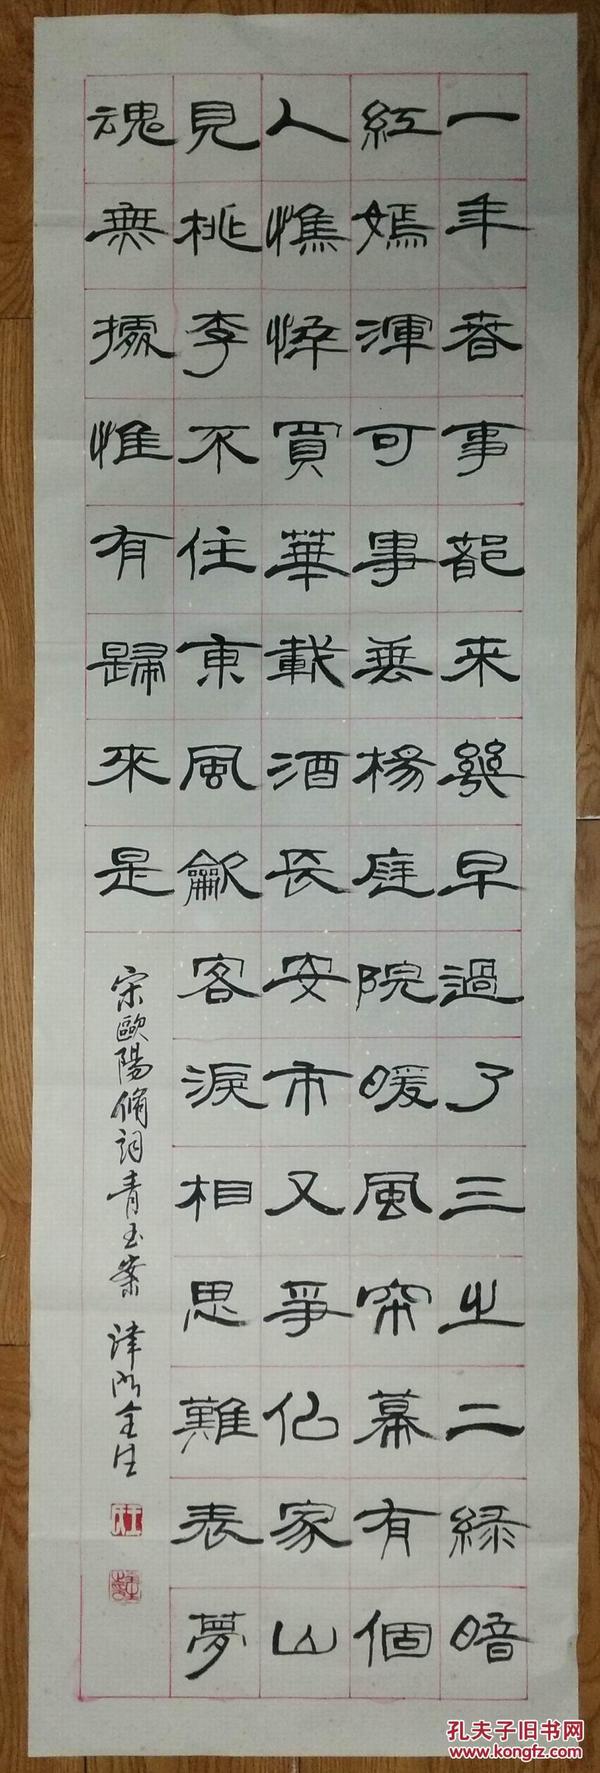 一年春事都来幾早過了三之二綠暗
紅嫣渾可事垂楊庭院暖風帘幕有個
人憔悴買華載酒長安市又爭似家山
見桃李不住東風龡客淚相思難表夢
魂無據惟有歸來是
宋歐陽脩詞青玉案 津門全生
孔夫子旧书网
www.kongfz.com